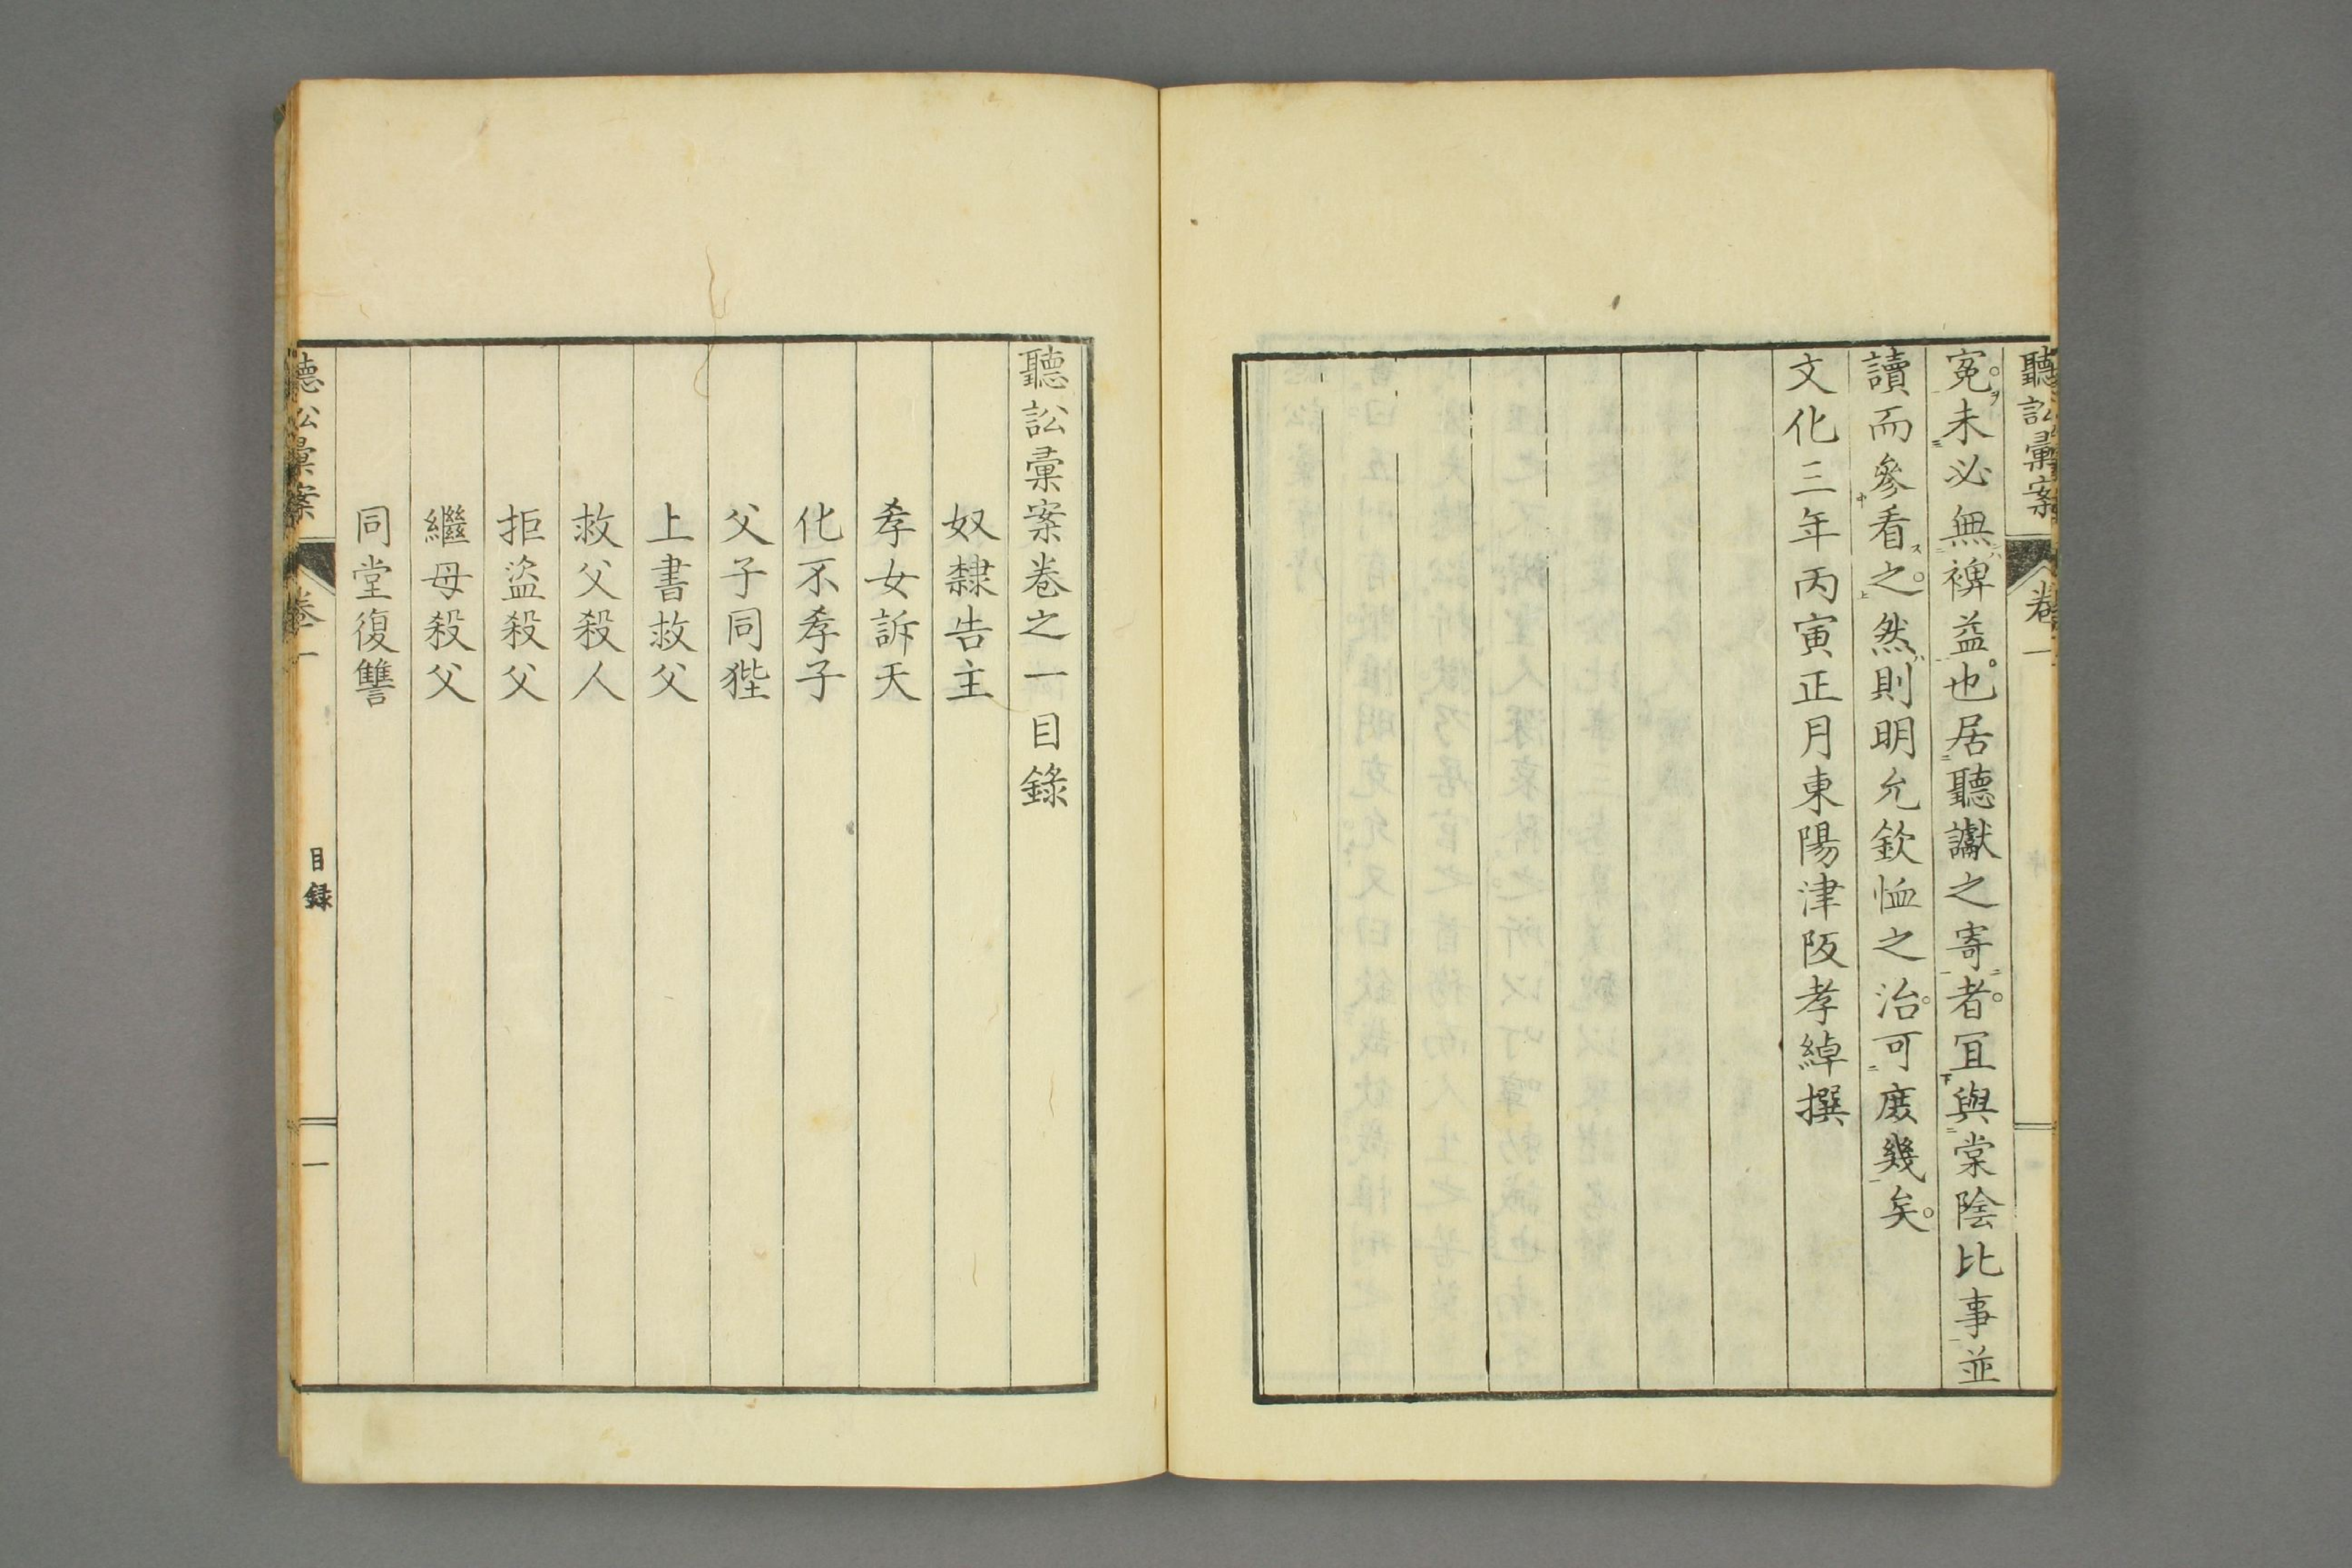 聽訟彙案 卷一
寃未必無裨益也。居聽讞之寄者。宜與棠陰比事並
讀而參看之。然則明允欽恤之治。可庶幾矣。
文化三年丙寅正月東陽津阪孝綽撰
聽訟彙案卷之一目錄
奴隸告主
孝女訴天
化不孝子
父子同狴
上書救父
救父殺人
拒盜殺父
繼母殺父
同堂復讐
聽訟彙案 卷一 目録 一